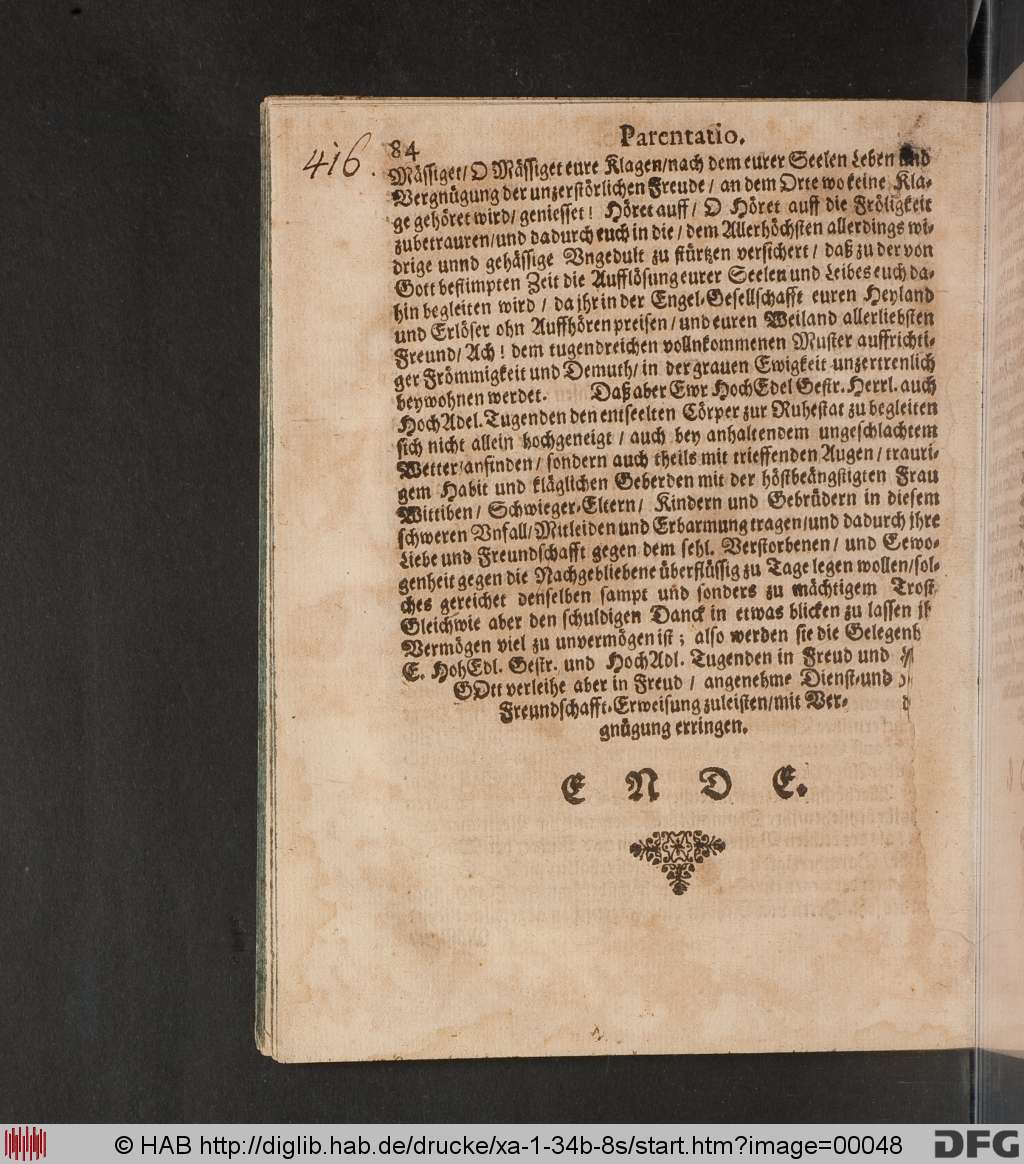 416.
84 Parentatio.
Mässiget/ O Mässiget eure Klagen/nach dem eurer Seelen Leben und
Vergnügung der unzerstörlichen Freude/ an dem Orte wo keine Kla-
ge gehöret wird/ geniesset! Höret auff/ O Höret auff die Fröligkeit
zubetrauren/und dadurch euch in die/ dem Allerhöchsten allerdings wi-
drige unnd gehässige Ungedult zu stürtzen versichert/ daß zu der von
Gott bestimpten Zeit die Aufflösung eurer Seelen und Leibes euch da-
hin begleiten wird/ da jhr in der Engel-Gesellschafft euren Heyland
und Erlöser ohn Auffhören preisen/und euren Weiland allerliebsten
Freund/ Ach! dem tugendreichen vollnkommenen Muster auffrichti-
ger Frömmigkeit und Demuth/ in der grauen Ewigkeit unzertrenlich
beywohnen werdet. Daß aber Ewr HochEdel Gestr. Herrl. auch
HochAdel. Tugenden den entseelten Cörper zur Ruhestat zu begleiten
sich nicht allein hochgeneigt/ auch bey anhaltendem ungeschlachtem
Wetter/anfinden/ sondern auch theils mit trieffenden Augen/ trauri-
gem Habit und kläglichen Geberden mit der höstbeängstigten Frau
Wittiben/ Schwieger-Eltern/ Kindern und Gebrüdern in diesem
schweren Unfall/Mitleiden und Erbarmung tragen/und dadurch jhre
Liebe und Freundschafft gegen dem sehl. Verstorbenen/ und Gewo-
genheit gegen die Nachgebliebene überflüssig zu Tage legen wollen/sol-
ches gereichet denselben sampt und sonders zu mächtigem Trost.
Gleichwie aber den schuldigen Danck in etwas blicken zu lassen
Vermögen viel zu unvermögen ist; also werden sie die
E. HohEdl. Gestr. und HochAdl. Tugenden in Freud und
GOtt verleihe aber in Freud/ angenehme Dienst-und
Freundschafft-Erweisung zuleisten/mit Ver-
gnügung erringen.
E N D E.
© HAB http://diglib.hab.de/drucke/xa-1-34b-8s/start.htm?image=00048
DFG